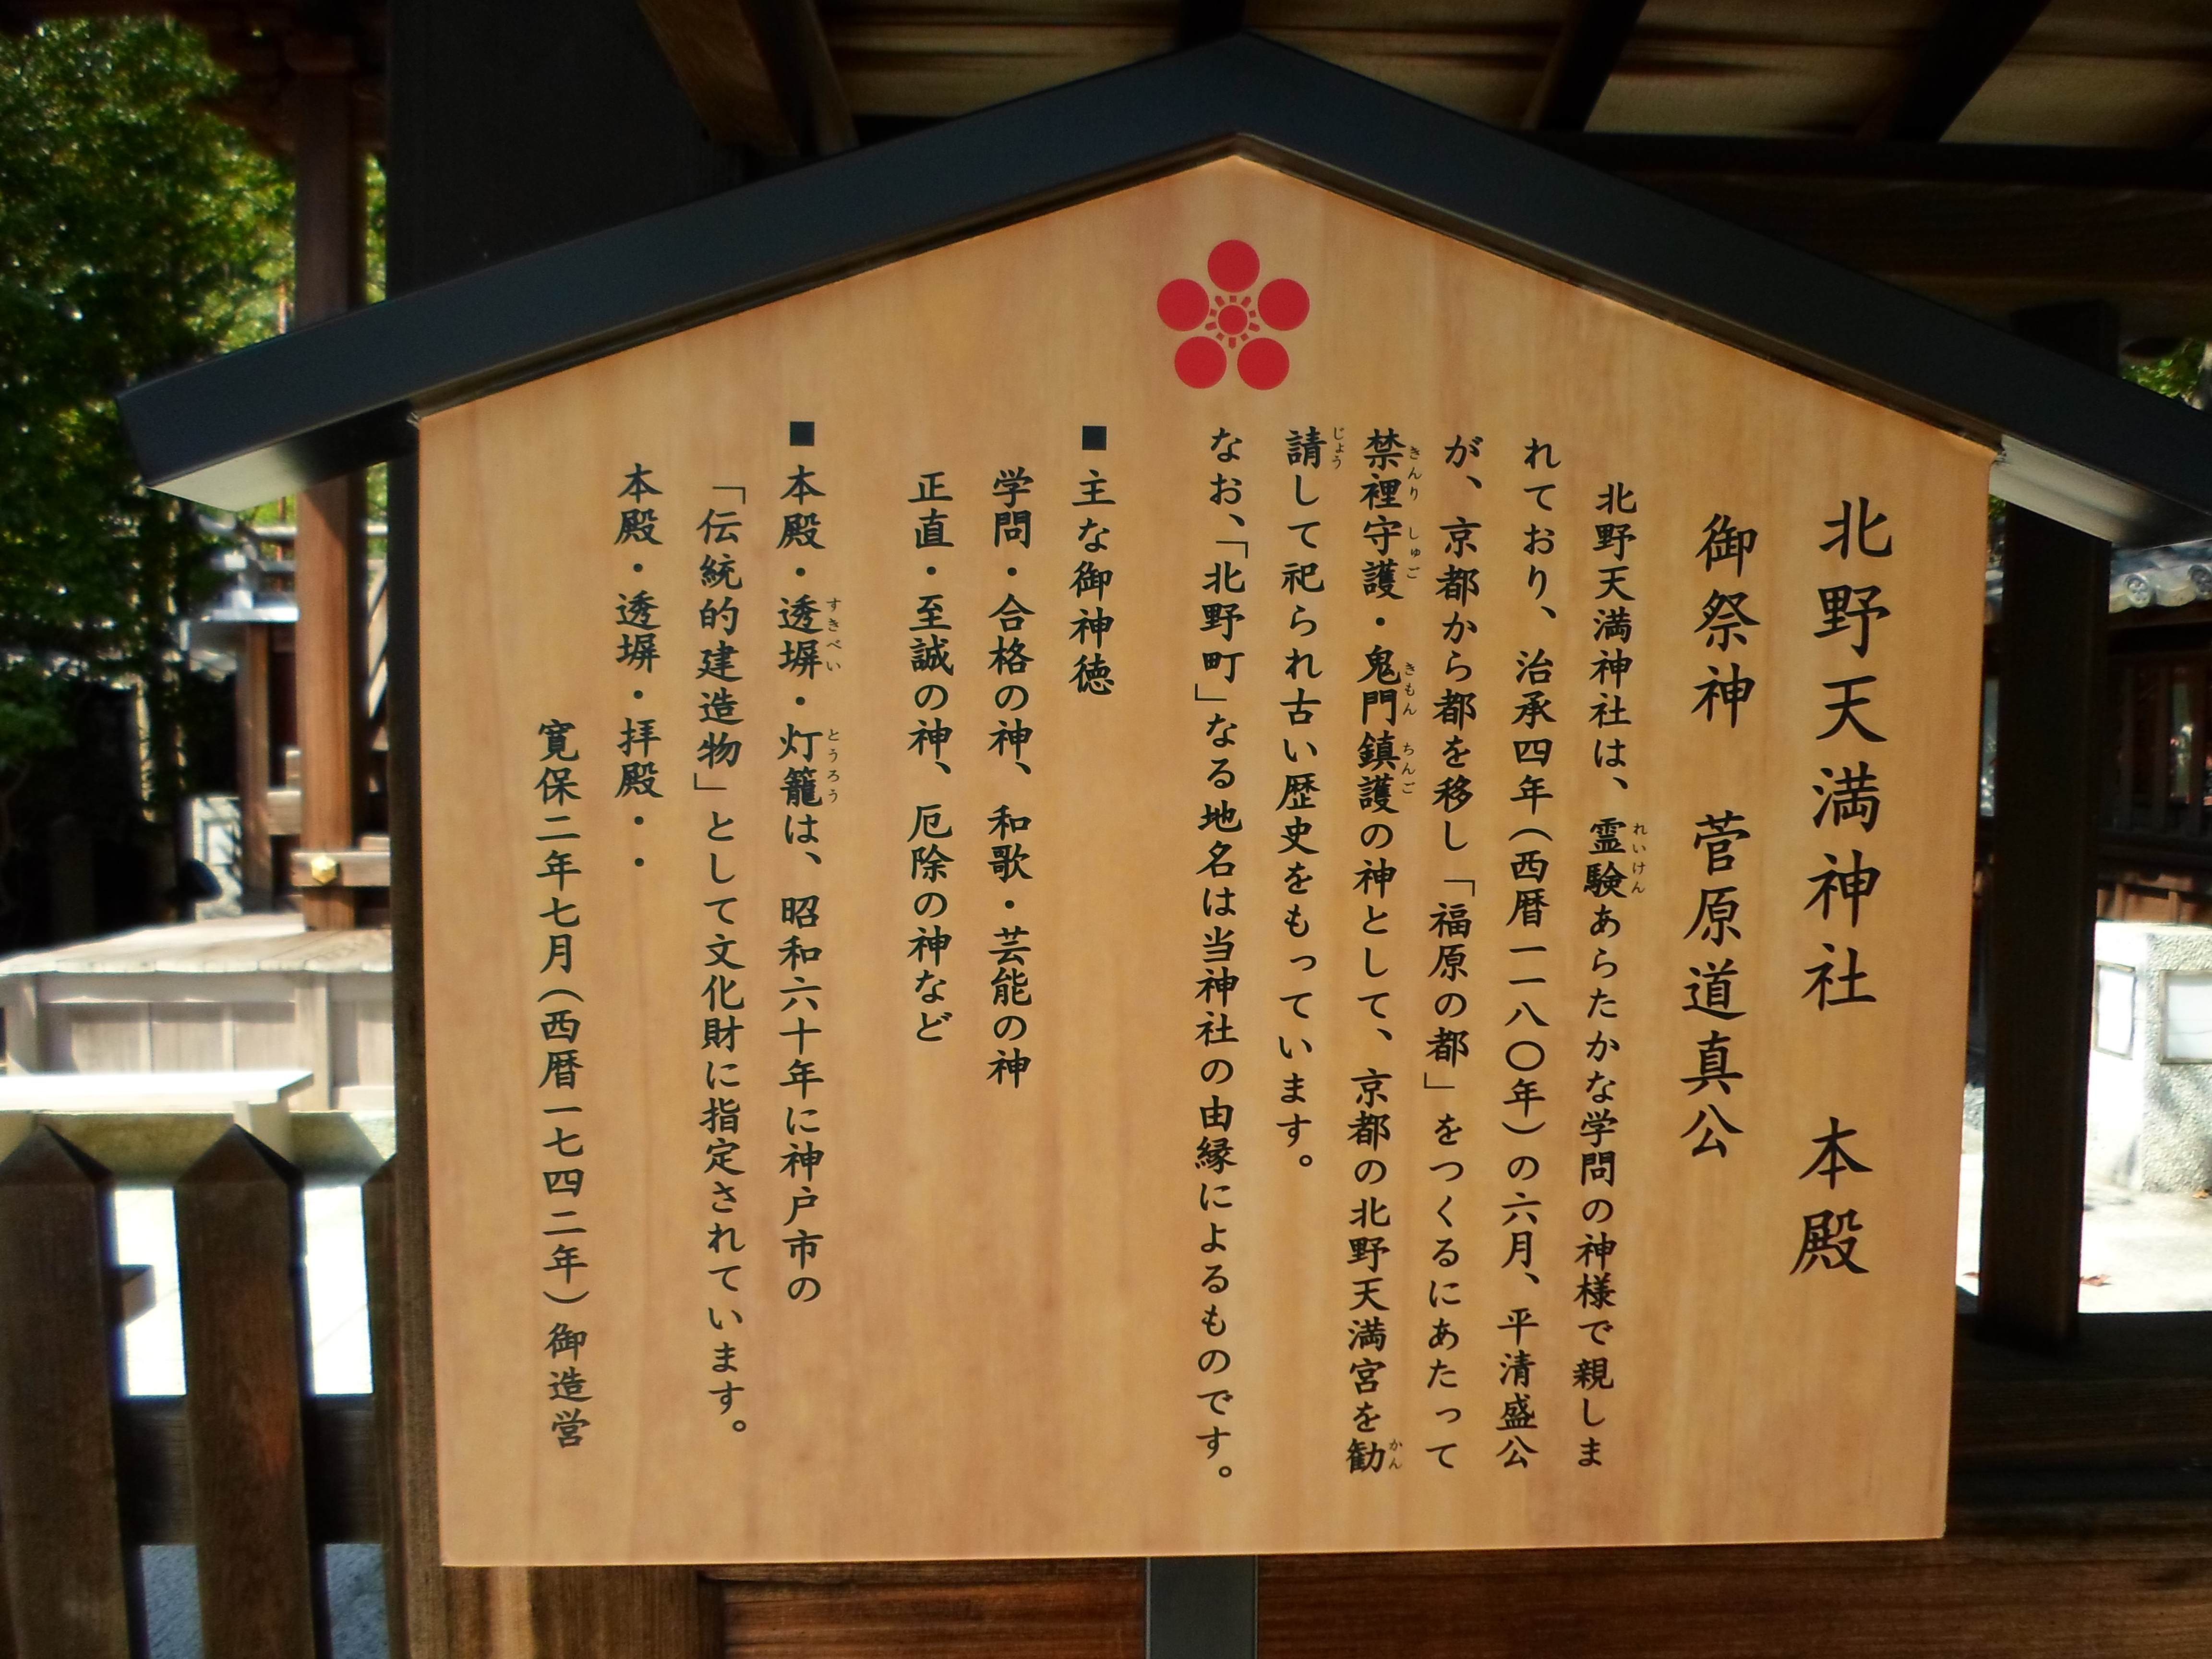 北野天満神社　本殿
御祭神　菅原道真公
北野天満神社は、霊験あらたかな学問の神様で親しま
れており、治承四年(西暦一一八〇年)の六月、平清盛公
が、京都から都を移し「福原の都」をつくるにあたって
禁裡守護・鬼門鎮護の神として、京都の北野天満宮を勧
請して祀られ古い歴史をもっています。
なお、「北野町」なる地名は当神社の由縁によるものです。
■主な御神徳
学問・合格の神、和歌・芸能の神
正直・至誠の神、厄除の神など
■本殿・透塀・灯籠は、昭和六十年に神戸市の
「伝統的建造物」として文化財に指定されています。
本殿・透塀・拝殿・・
寛保二年七月(西暦一七四二年)御造営